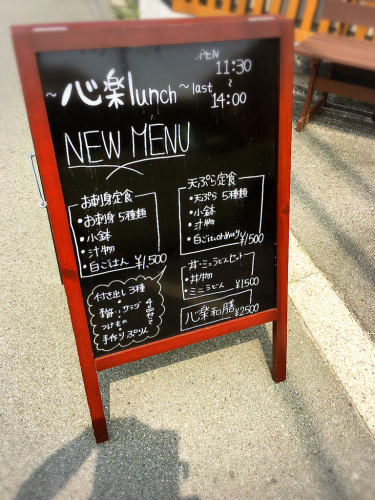 OPEN
11:30
~心楽lunch~ last
~
14:00
NEW MENU
お刺身定食
・お刺身5種類
・小鉢
・汁物
・白ごはん ¥1,500
天ぷら定食
・天ぷら5種
・小鉢
・汁物
・白ごはん ¥1,500
丼・ミニうどんセット
・丼物
・ミニうどん ¥1500
付き出し3種
サラダ
つけもの
手作りぷりん
心楽和膳 ¥2500